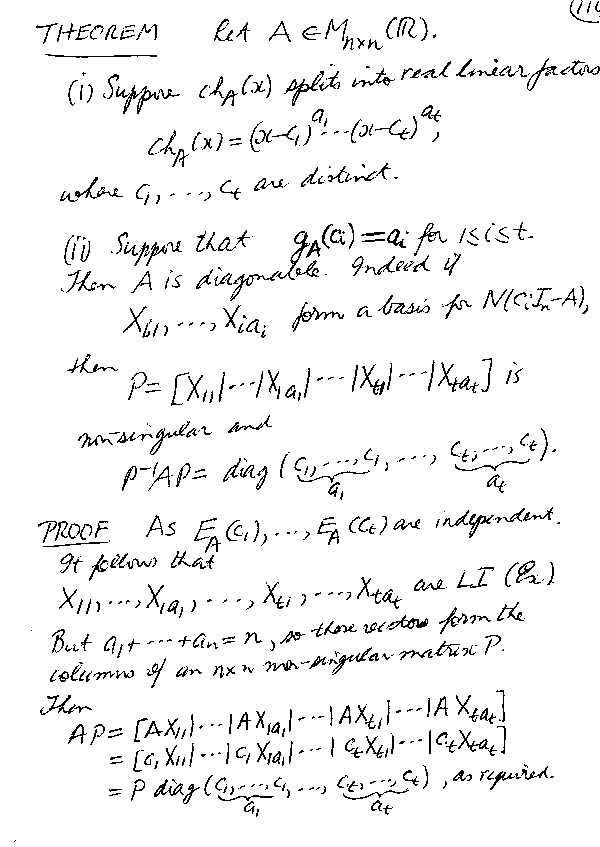 THEOREM Let A ∈ M_{n×n}(ℝ).
(i) Suppose ch_A(x) splits into real linear factors
ch_A(x) = (x-c_1)^{a_1} ... (x-c_t)^{a_t},
where c_1, ..., c_t are distinct.
(ii) Suppose that g_A(c_i) = a_i for 1≤i≤t.
Then A is diagonable. Indeed if
X_{i1}, ..., X_{ia_i} form a basis for N(c_iI_n-A),
then
P = [X_{11}|...|X_{1a_1}|...|X_{t1}|...|X_{ta_t}] is
non-singular and
P^{-1}AP = diag (c_1, ..., c_1, ..., c_t, ..., c_t).
a_1 a_t
PROOF As E_A(c_1), ..., E_A(c_t) are independent.
It follows that
X_{11}, ..., X_{1a_1}, ..., X_{t1}, ..., X_{ta_t} are LI (Ex)
But a_1 + ... + a_n = n, so these vectors form the
columns of an n×n non-singular matrix P.
Then
AP = [AX_{11}|...|AX_{1a_1}|...|AX_{t1}|...|AX_{ta_t}]
= [c_1X_{11}|...|c_1X_{1a_1}|...|c_tX_{t1}|...|c_tX_{ta_t}]
= P diag (c_1, ..., c_1, ..., c_t, ..., c_t), as required.
a_1 a_t